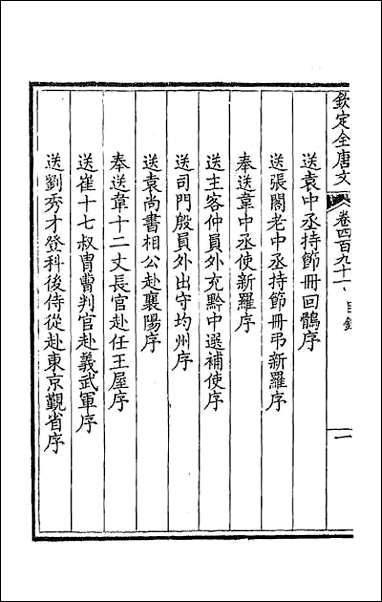 欽定全唐文 卷四百九十一 目錄 一
送袁中丞持節冊回鶻序
送張閣老中丞持節冊弔新羅序
奉送韋中丞使新羅序
送主客仲員外充黔中選補使序
送司門殷員外出守均州序
送袁尚書相公赴襄陽序
奉送韋十二丈長官赴任王屋序
送崔十七叔胄曹判官赴義武軍序
送劉秀才登科後侍從赴東京觀省序